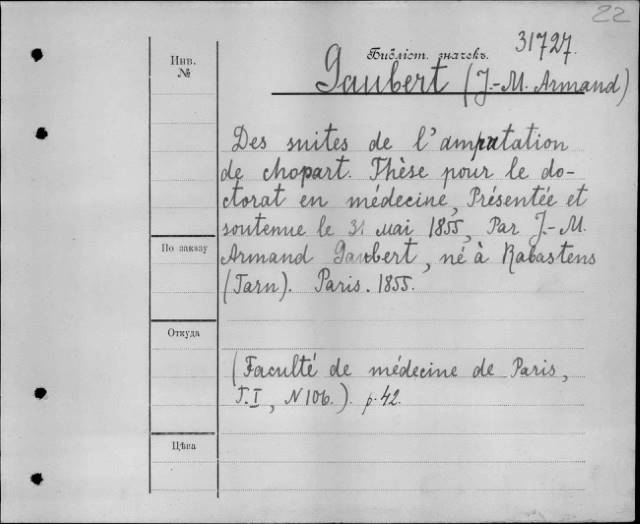 22
31727.
Библіот. значекъ.
Gaubert (J.-M. Armand)
Инв.
№
Des suites de l'amputation
de chopart. Thèse pour le do-
ctorat en médecine, Présentée et
soutenue le 31 mai 1855, Par J.-M.
По заказу
Armand Gaubert, né à Rabastens
(Tarn). Paris. 1855.
Откуда
(Faculté de médecine de Paris,
T.I, N 106.). p. 42.
Цѣна